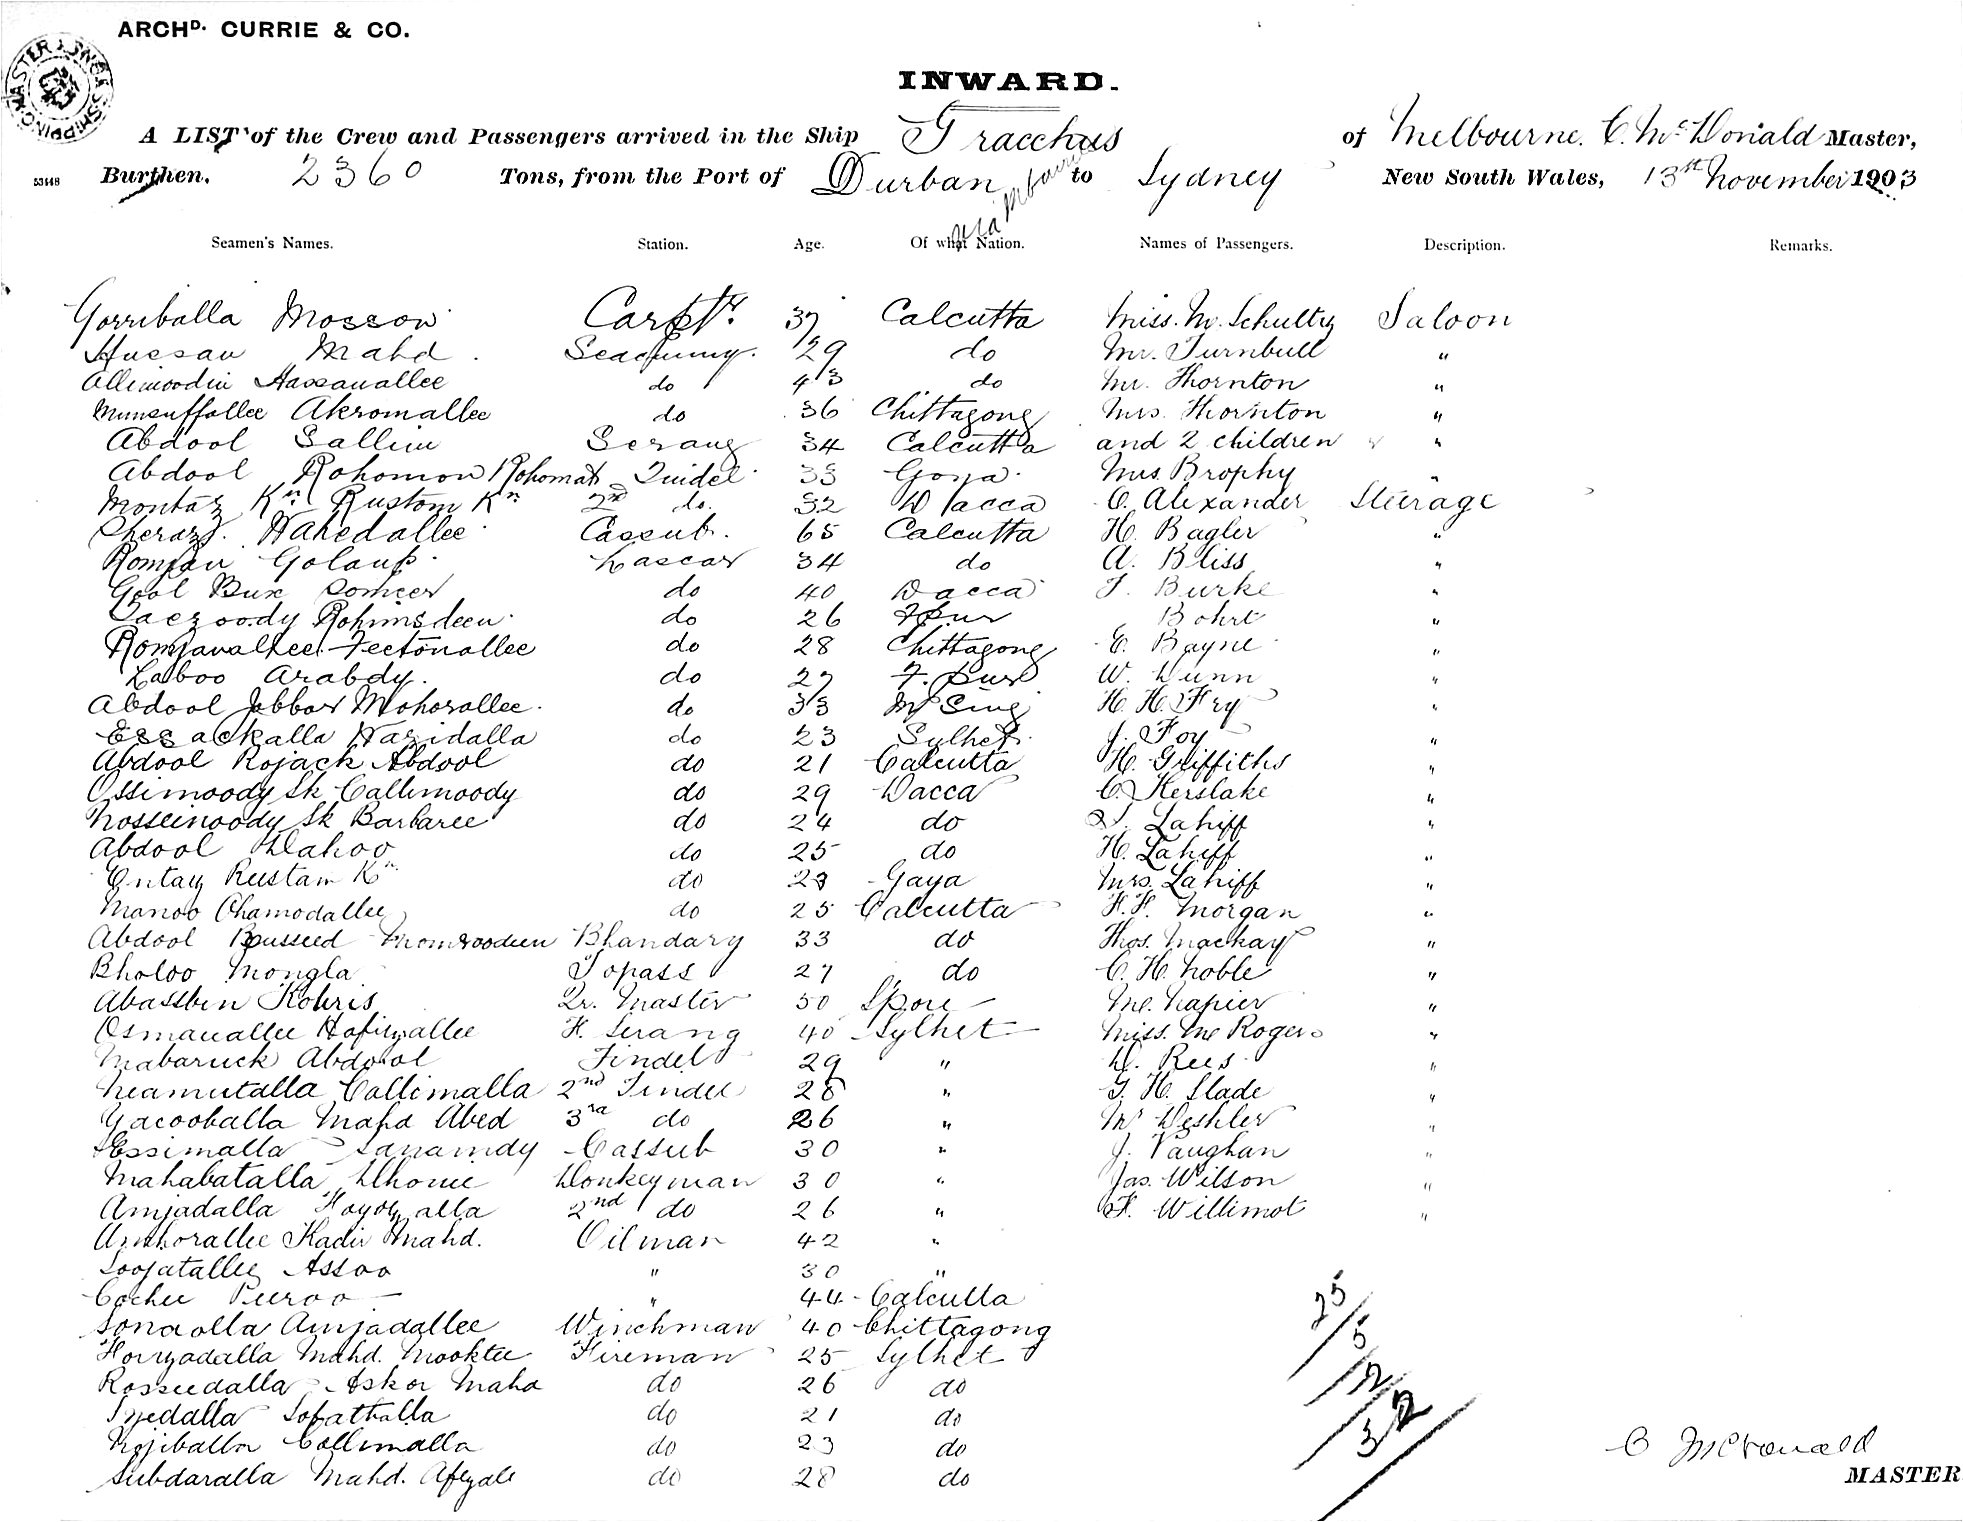 ARCHD. CURRIE & CO.
INWARD.
A LIST of the Crew and Passengers arrived in the Ship Gracchus of Melbourne. C. McDonald Master,
53448 Burthen, 2360 Tons, from the Port of Durban via to Sydney New South Wales, 13th November 1903
Seamen's Names. Station. Age. Of what Nation. Names of Passengers. Description. Remarks.
Gorriballa Mosson Carptr. 37 Calcutta Miss. M. Schultz Saloon
Hussan Mahd. 29 do Mr. Turnbull "
Allimoodin Hassanallee do 43 do Mr. Thornton "
Munsuffallee Akromallee do 36 Chittagong Mrs. Thornton "
Abdool Sallim Serang 34 Calcutta and 2 children "
Abdool Rohomon Rohomat Tindel 33 Mrs Brophy "
Montaz Kn. Rustom Kn 2nd do. 32 Dacca C. Alexander Steerage
Sherazj. Hahedallee Cassub. 65 Calcutta H. Bagler "
Romjan Golaup. Lascar 34 do A. Bliss "
Gool Bux do 40 Dacca J. Burke "
Rohimsdeen do 26 F Pur Bohrt "
Romjanallee Feetonallee do 28 Chittagong E. Bayne "
Laboo Arabdy. do 27 F. Pur W. Dunn "
Abdool Jobbar Mohorallee. do 33 M Sing H. H. Fry "
Essackalla Hazidalla do 23 Sylhet. J. Foy "
Abdool Rojack Abdool do 21 Calcutta H. Griffiths "
Ossimoody Sk Callimoody do 29 Dacca C. Kerslake "
Nosseinoody Sk Barbaree do 24 do Lahiff "
Abdool Dahoo do 25 do H. Lahiff "
Entaz Rustam Kn. do 23 Gaya Mrs. Lahiff "
Manoo Chamodallee do 25 Calcutta H. H. Morgan "
Abdool Busseed Momroodeen Bhandary 33 do Thos. Mackay "
Bholoo Mongla Topass 27 do C. H. Noble "
Abassbin Kohris Qr. Master 50 Spore Mc. Napier "
Osmanallee Hafizallee F. Serang 40 Sylhet Miss. Mc Rogers "
Mabaruck Abdool Tindel 29 " D. Rees "
Neamutalla Callimalla 2nd Tindel 28 " G. H. Slade "
Yacooballa Mahd Abed 3rd do 26 " Mr Deshler "
Essimalla Sanamdy Cassub 30 " J. Vaughan "
Mahabatalla Dhonie Donkeyman 30 " Jas. Wilson "
Amjadalla Foyozalla 2nd do 26 " F. Willimot "
Amhorallee Kadir Mahd. Oilman 42 "
Soojatallee Assoo " 30 "
Cochee Peeroo " 44 Calcutta
Sonaolla Amjadallee Winchman 40 Chittagong
Foryzadalla Mahd. Mooktee Fireman 25 Sylhet
Rosseedalla Askor Mahd do 26 do
Syedalla Sofathalla do 21 do
Nojiballa Collimalla do 23 do
Subdaralla Mahd. Afyzale do 28 do
25
5
2
32
C McDonald
MASTER